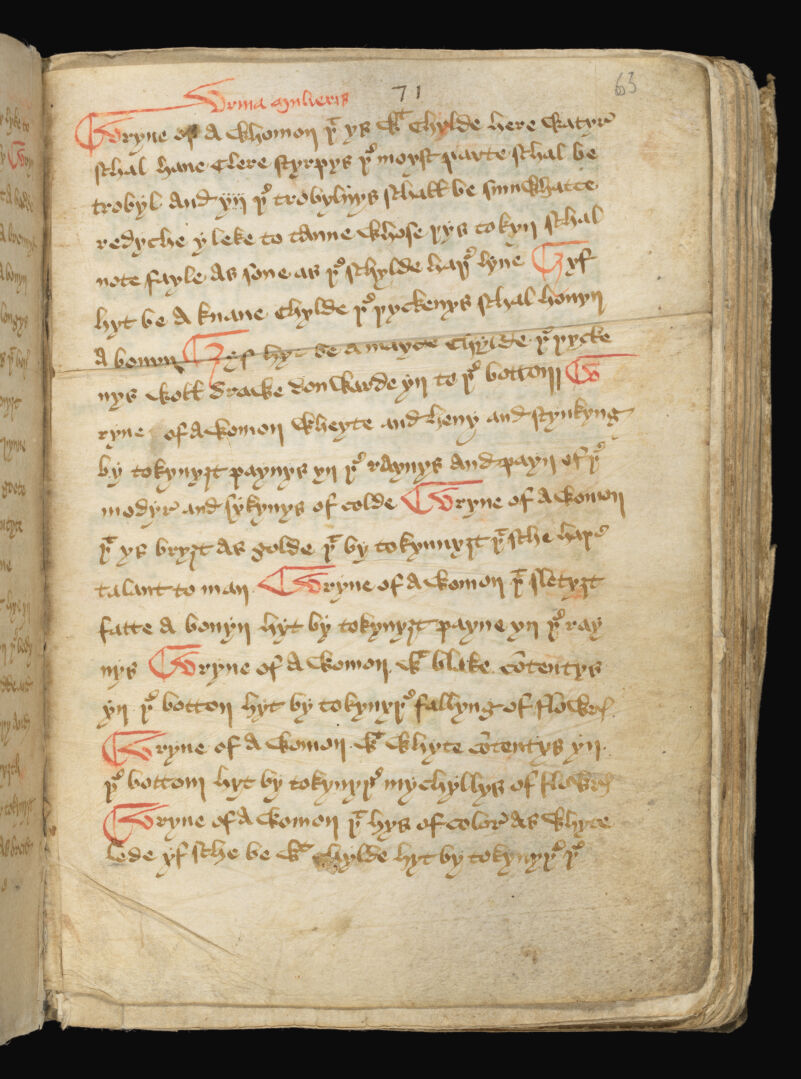 Vrina mulieris 71 63
Vryne of A Whomon þt ys wt chylde here watyre
schal haue clere strypys þe moyst parte schal be
trobyl And yn þe trobylnys schall be sum whatte
redyche y leke to tanne whose þys tokyn schal
note fayle as sone as þe schylde haþe lyue Gyf
hyt be A knaue chylde þe pyckenys schal houyn
A bouyn Gyf hyt be A mayde chylde þe pycke
nys woll drawe donwarde yn to þe bottom V
ryne of A womon wheyte and heuy and stynkyng
by tokynyȝt paynys yn þe raynys And payn of þe
modyre and sykynys of colde Vryne of A womon
þt ys bryȝt as golde þt by tokynnyȝt þt sche haþe
talant to man Vryne of A womon þt fletyȝt
fatte A bouyn hyt by tokynyȝt payne yn þe ray
nys Vryne of A womon wt blake cōtentys
yn þe botton hyt by tokynyþe fallyng of flowres
Vryne of A womon wt whyte cōtentys yn
þe bottom hyt by tokynyþe mychyllys of flowres
Vryne of A womon þt hys of colore as whyte
lede yf sche be wt chylde hyt by tokynyþe þt